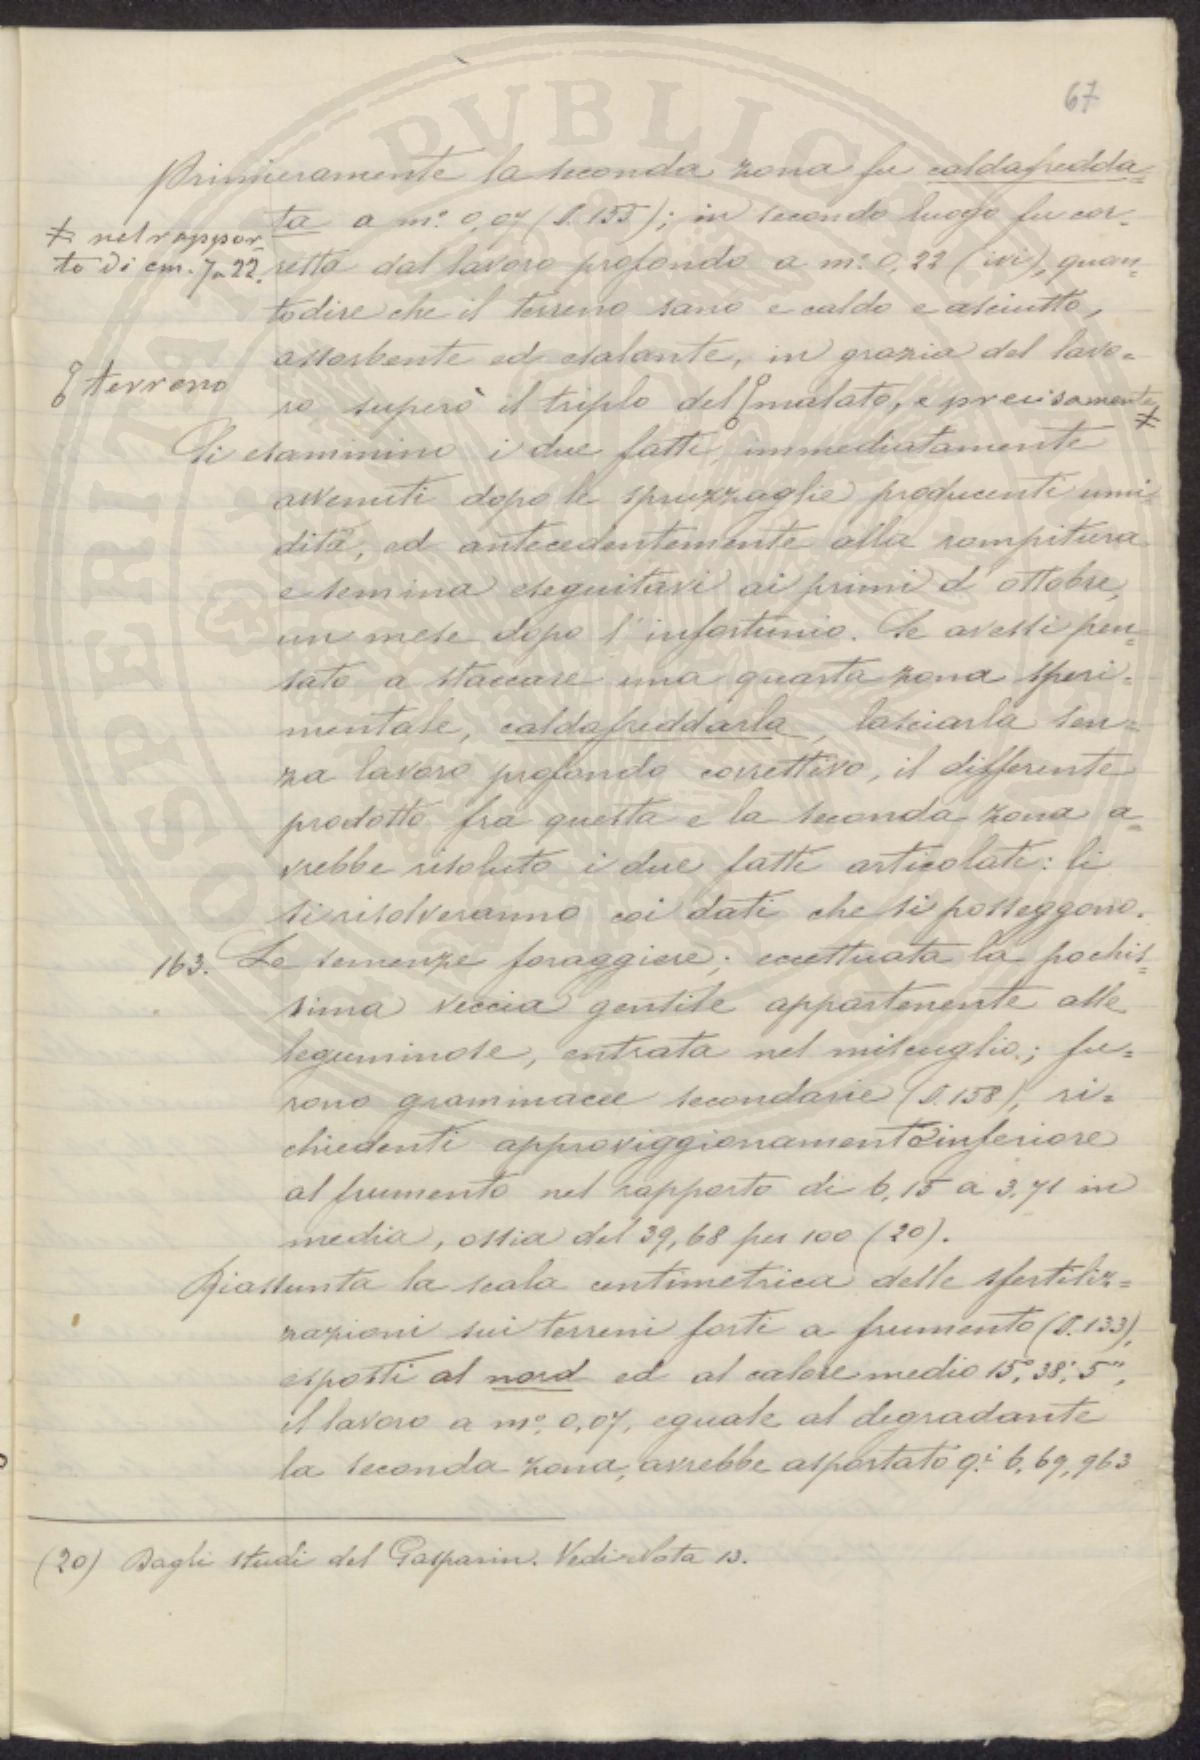 67
Primieramente la seconda zona fu caldafredda=
ta a m.º 0,07 (§.155); in secondo luogo fu cor=
≠ nel rappor=
to di cm. 7 a 22.
retta dal lavoro profondo a m.º 0,22 (ivi), quan=
todire che il terreno sano e caldo e asciutto,
assorbente ed esalante, in grazia del lavo=
terreno
ro superò il triplo del malato, e precisamente ≠
Si esaminino i due fatti immediatamente
avvenuti dopo le spruzzaglie producenti umi=
dità, ed antecedentemente alla rompitura
e semina eseguitavi ai primi d'ottobre,
un mese dopo l'infortunio. Se avessi pen=
sato a staccare una quarta zona speri=
mentale, caldafreddarla, lasciarla sen=
za lavoro profondo correttivo, il differente
prodotto fra questa e la seconda zona a=
vrebbe risoluto i due fatti articolati: li
si risolveranno coi dati che si posseggono.
163. Le semenze foraggiere; eccettuata la pochis=
sima veccia gentile appartenente alle
leguminose, entrata nel miscuglio; fu=
rono graminacee secondarie (§.158), ri=
chiedenti approviggionamento inferiore
al frumento nel rapporto di 6,15 a 3,71 in
media, ossia del 39,68 per 100 (20).
Riassunta la scala centimetrica delle sfertiliz=
zazioni sui terreni forti a frumento (§.133),
esposti al nord ed al calore medio 15°, 38', 5'',
il lavoro a m.º 0,07, eguale al degradante
la seconda zona, avrebbe asportato q.i 6,69,963
(20) Dagli studi del Gasparin. Vedi Nota 13.